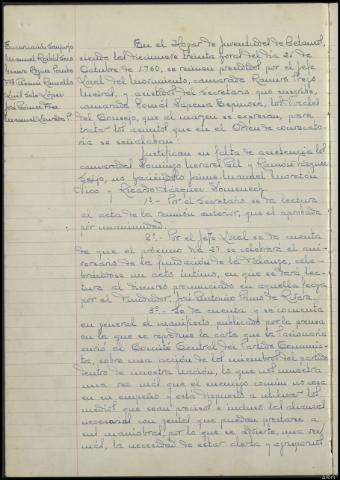 En el Hogar de Juventudes de Betanzos,
siendo las diecinueve treinta horas del día 26 de
Octubre de 1960, se reunen presididos por el Jefe
Local del Movimiento, camarada Ramiro Trejo
y asistidos del Secretario que suscribe,
camarada Tomás Dapena Espinosa, los Vocales
del Consejo, que al margen se expresan, para
tratar los asuntos que en el Orden de convocato-
ria se señalaban:
Justifican su falta de asistencia los
camaradas Domingo
no haciéndolo Jaime Manuel
y Ricardo Vázquez
1º.- Por el Secretario se da lectura
al acta de la reunión anterior, que es aprobada
por unanimidad.
2º.- Por el Jefe Local se da cuenta
de que el próximo día 29 se celebrará el ani-
versario de la fundación de la Falange, cele-
brándose un acto íntimo, en que se dará lec-
tura al discurso pronunciado en aquella fecha
por el Fundador, José Antonio Primo de Rivera.
3º.- Se da cuenta y se comenta
en general el manifiesto publicado por la prensa
en la que se reproduce la carta que la
envió al Comité Central del Partido Comunis-
ta, sobre una acción de los miembros del partido
dentro de nuestra nación, lo que nos muestra
una vez más que el enemigo común no cesa
en su empeño y está dispuesto a utilizar los
medios que sean precisos e incluso las alianzas
necesarias con gentes que puedan prestarse a
sus maniobras, por lo que se advierte, una vez
más, la necesidad de estar alerta y